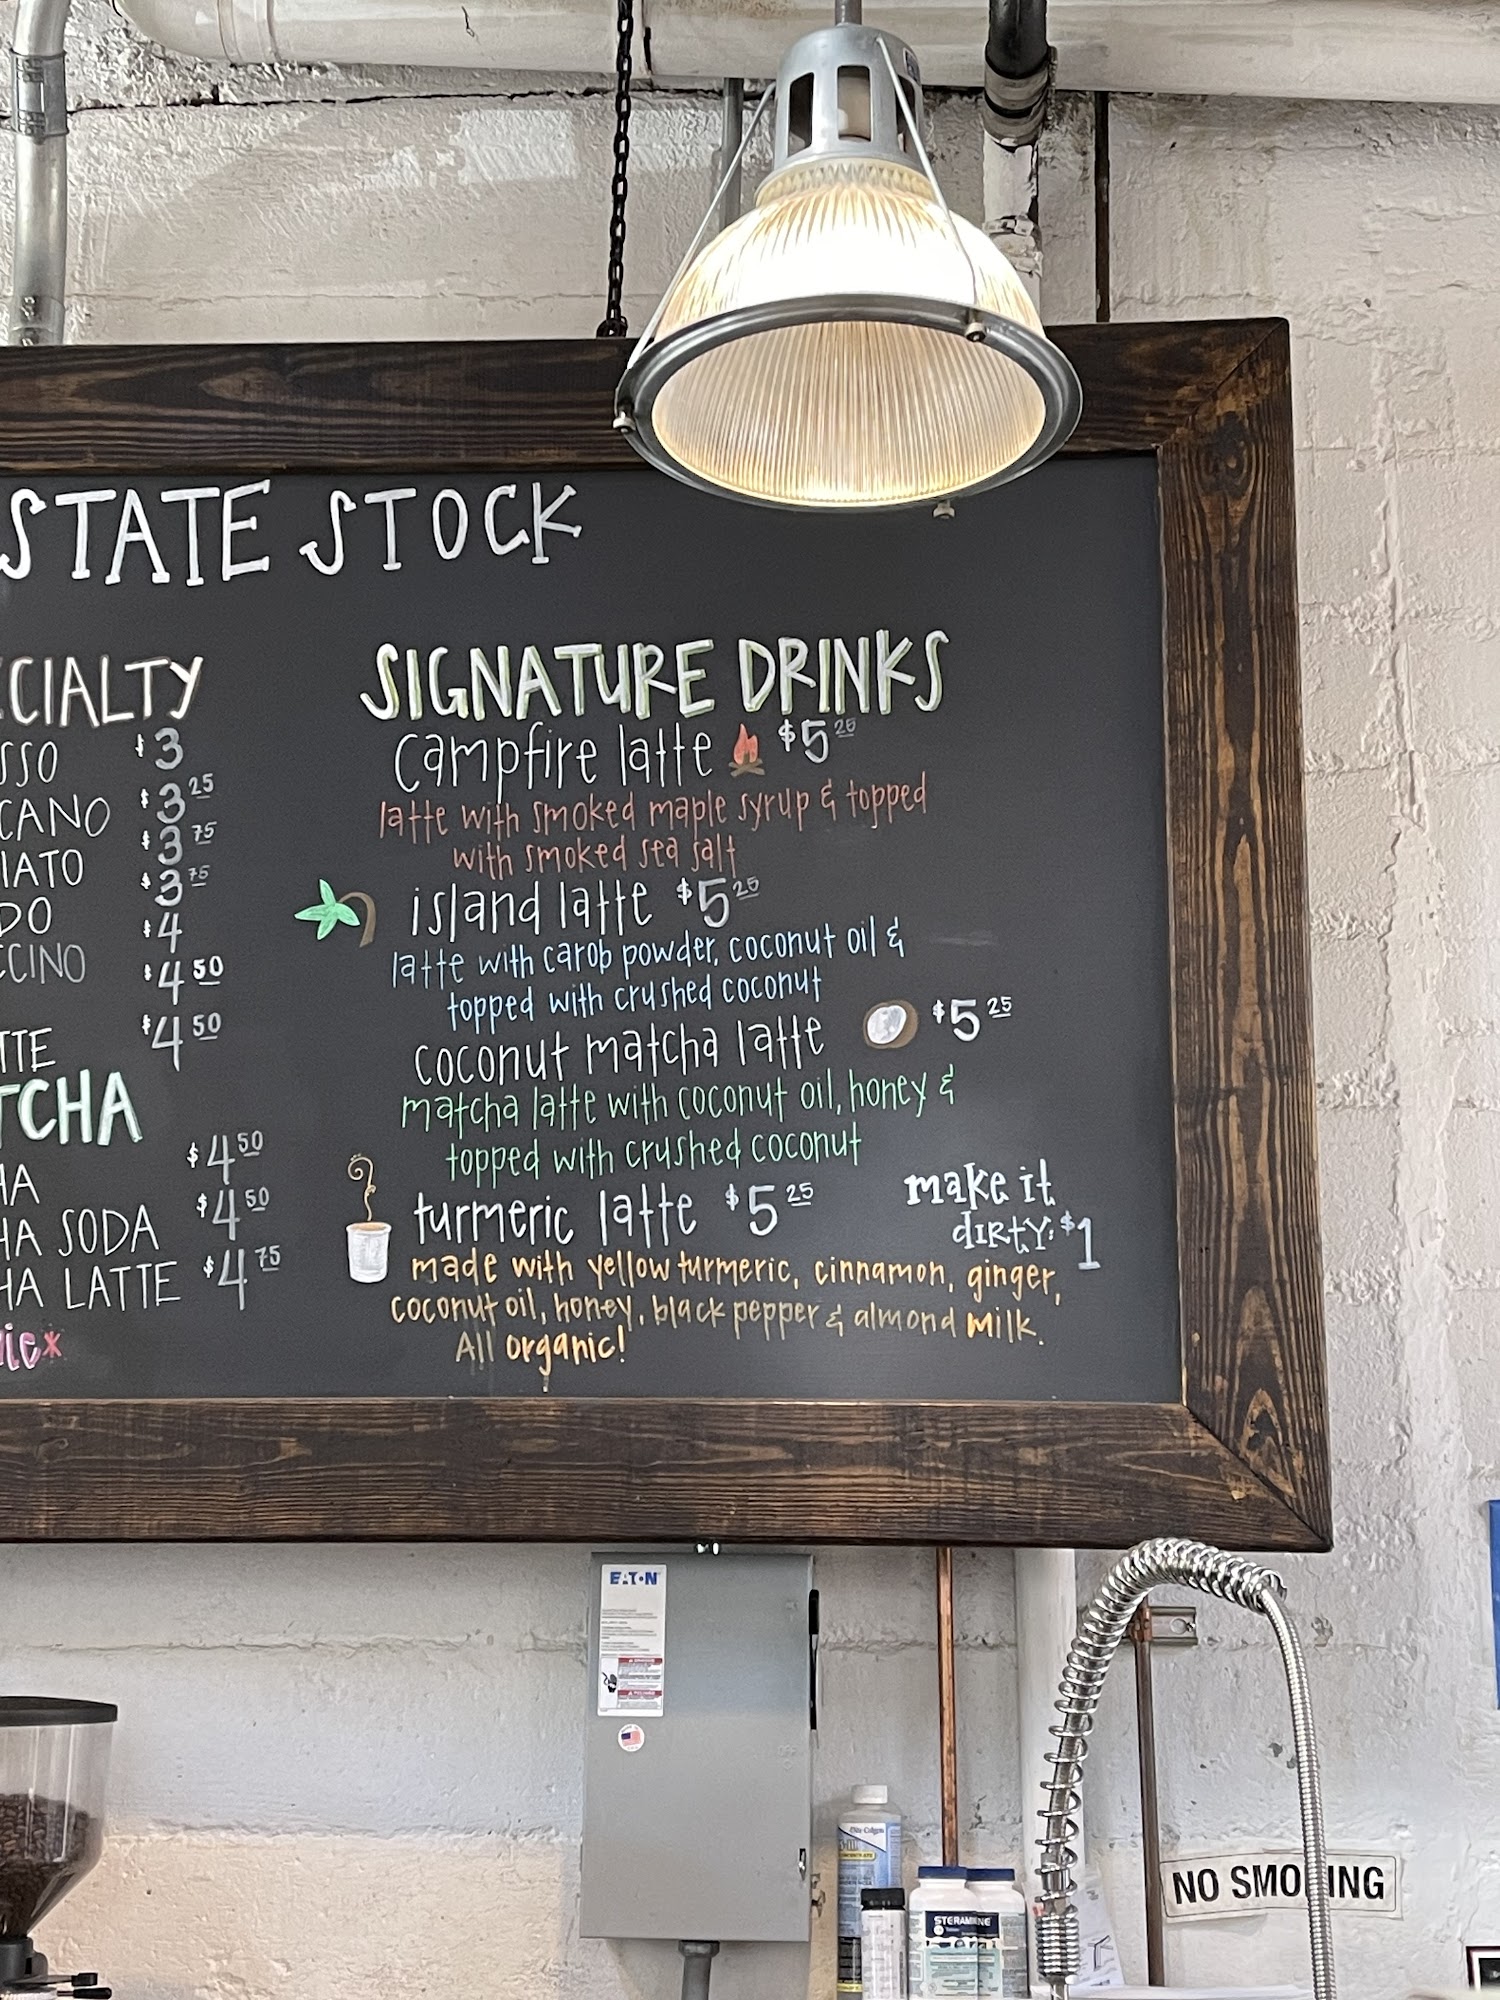 STATE STOCK
CIALTY
SSO $3
CANO $3 25
IATO $3 75
DO $3 75
CCINO $4
$4 50
TTE $4 50
TCHA
HA $4 50
HA SODA $4 50
HA LATTE $4 75
ie*
SIGNATURE DRINKS
campfire latte $5 25
latte with smoked maple syrup & topped
with smoked sea salt
island latte $5 25
latte with carob powder, coconut oil &
topped with crushed coconut
coconut matcha latte $5 25
matcha latte with coconut oil, honey &
topped with crushed coconut
turmeric latte $5 25
make it
dirty: $1
made with yellow turmeric, cinnamon, ginger,
coconut oil, honey, black pepper & almond milk.
All organic!
EATON
STERAMINE
NO SMOKING